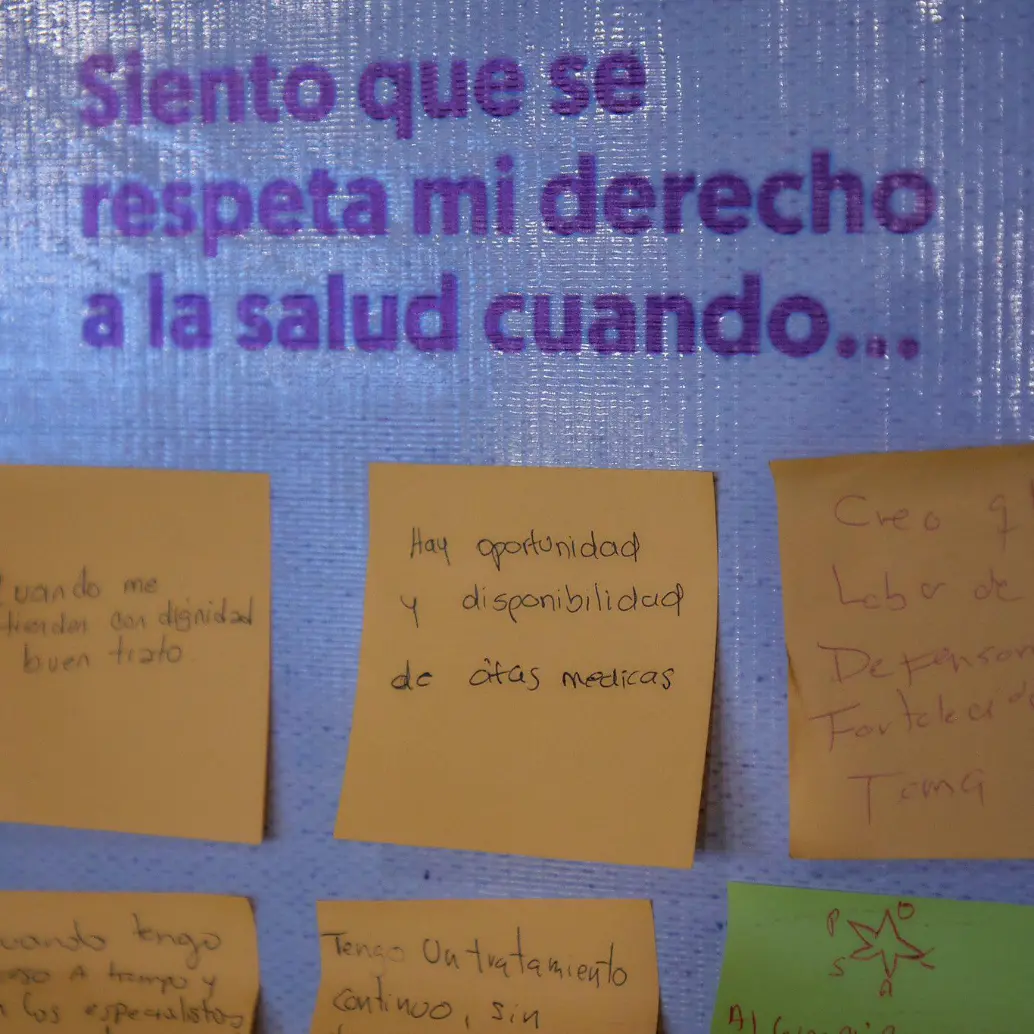 Siento que se
respeta mi derecho
a la salud cuando...
uando me
tienden con dignidad
buen trato
Hay oportunidad
y disponibilidad
de citas medicas
Creo q
Labor de
Defensor
Tema
uando tengo
A tiempo y
los especialistas
Tengo Un tratamiento
continuo, sin
P O
S
A